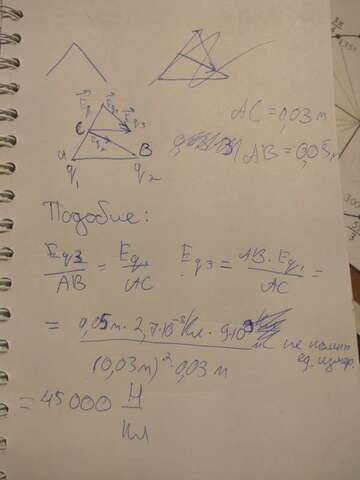 E⃗q₁
E⃗q₃
C
E⃗q₂
A
B
q₁
q₂
AC = 0,03 м
AB = 0,05 м
Подобие:
Eq3/AB = Eq₁/AC Eq3 = AB · Eq₁/AC =
= 0,05м · 2,7·10⁻⁸Кл · 9·10⁹/(0,03м)² · 0,03м не помню ед. измер.
= 45000 Н/Кл